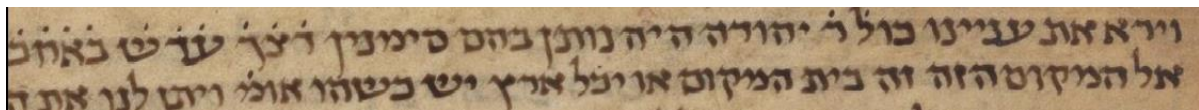 וירא את עניינו כול ר' יהודה היה נותן בהם סימנין ד'צ'ך' ע'ד'ש' ב'א'ח'ב'
אל המקום הזה זה בית המקום או יכל ארץ יש כשהו אומ' ויתן לנו את ה